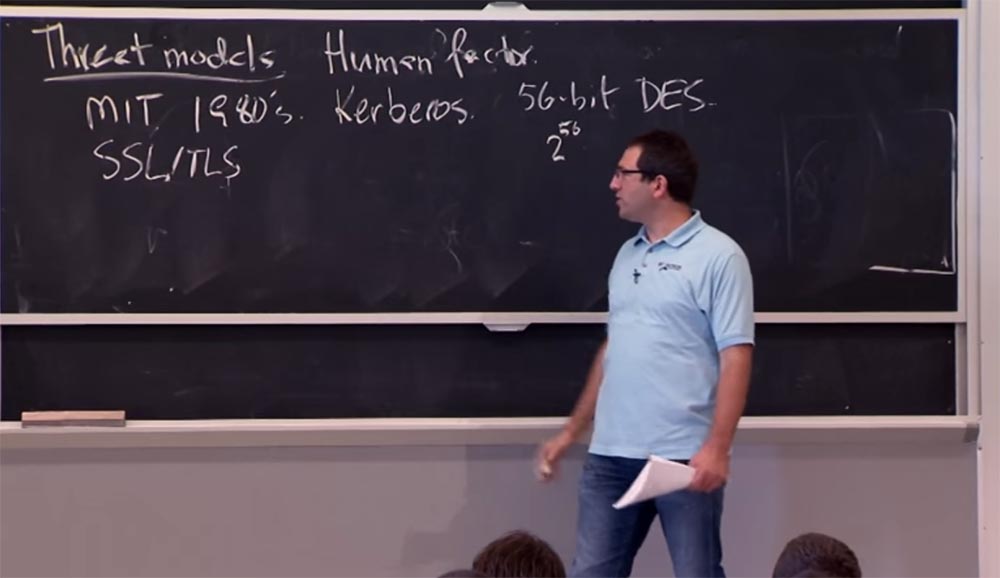 Threat models Human factor.
MIT 1980's. Kerberos. 56-bit DES
2^56
SSL/TLS